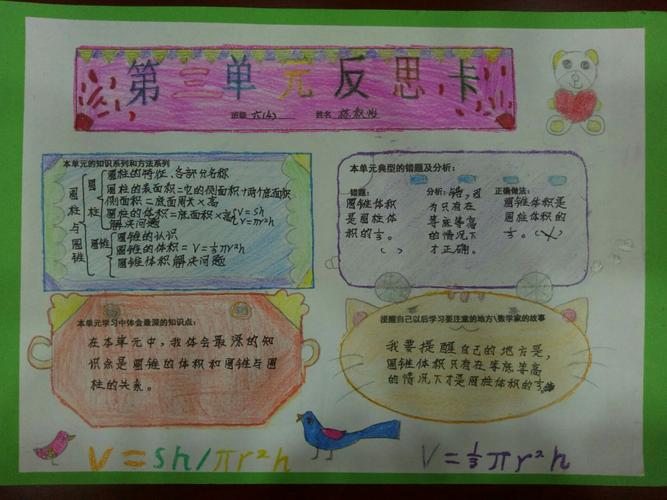 第三单元反思卡
班级 六(4) 姓名
本单元的知识系列和方法系列
圆柱与圆锥
圆柱
圆柱的特征、各部分名称
圆柱的表面积=它的侧面积+两个底面积
侧面积=底面周长×高
圆柱的体积=底面积×高 V=Sh V=πr²h
解决问题
圆锥
圆锥的认识
圆锥的体积=V=⅓πr²h
圆锥体积解决问题
本单元典型的错题及分析:
错题:
圆锥体积
是圆柱体
积的⅓。
( )
分析:错,因
为只有在
等底等高
的情况下
才正确。
正确做法:
圆锥体积是
圆柱体积的
⅓。(×)
本单元学习中体会最深的知识点:
在本单元中,我体会最深的知
识点是圆锥的体积和圆锥与圆
柱的关系。
提醒自己以后学习要注意的地方\数学家的故事
我要提醒自己的地方是,
圆锥体积只有在等底等高
的情况下才是圆柱体积的⅓。
V=Sh/πr²h
V=⅓πr²h